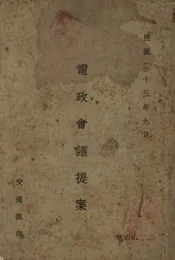 民國二十三年九月
電政會議提案
交通部印